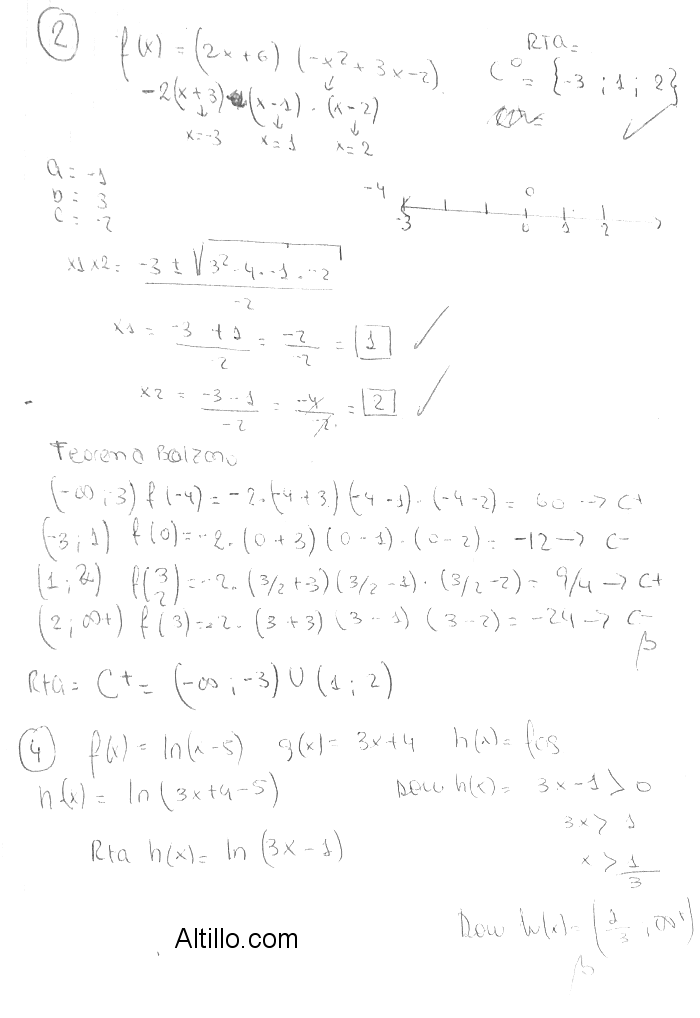 2
f(x) = (2x+6) (-x2 + 3x-2)
RTA=
C° = {-3 ; 1 ; 2}
-2(x+3) (x-1) . (x-2)
x=-3 x=1 x=2
a = -1
b = 3
c = -2
-4 0
-3 0 1 2
x1 x2 = -3 ± √3² - 4 . -1 . -2 / -2
x1 = -3 + 1 / -2 = -2 / -2 = 1
x2 = -3 - 1 / -2 = -4 / -2 = 2
Teorema Bolzano
(-∞ ; 3) f(-4) = -2.(-4+3)(-4-1).(-4-2) = 60 → C+
(-3 ; 1) f(0) = -2.(0+3)(0-1).(0-2) = -12 → C-
(1 ; 2) f(3/2) = -2.(3/2+3)(3/2-1).(3/2-2) = 9/4 → C+
(2 ; ∞+) f(3) = -2.(3+3)(3-1)(3-2) = -24 → C-
Rta = C+ = (-∞ ; -3) U (1 ; 2)
4 f(x) = ln(x-5) g(x) = 3x+4 h(x) = fog
h(x) = ln(3x+4-5) Dom h(x) = 3x-1 > 0
3x > 1
Rta h(x) = ln(3x-1)
x > 1/3
Dom h(x) = (1/3 , ∞+)
Altillo.com